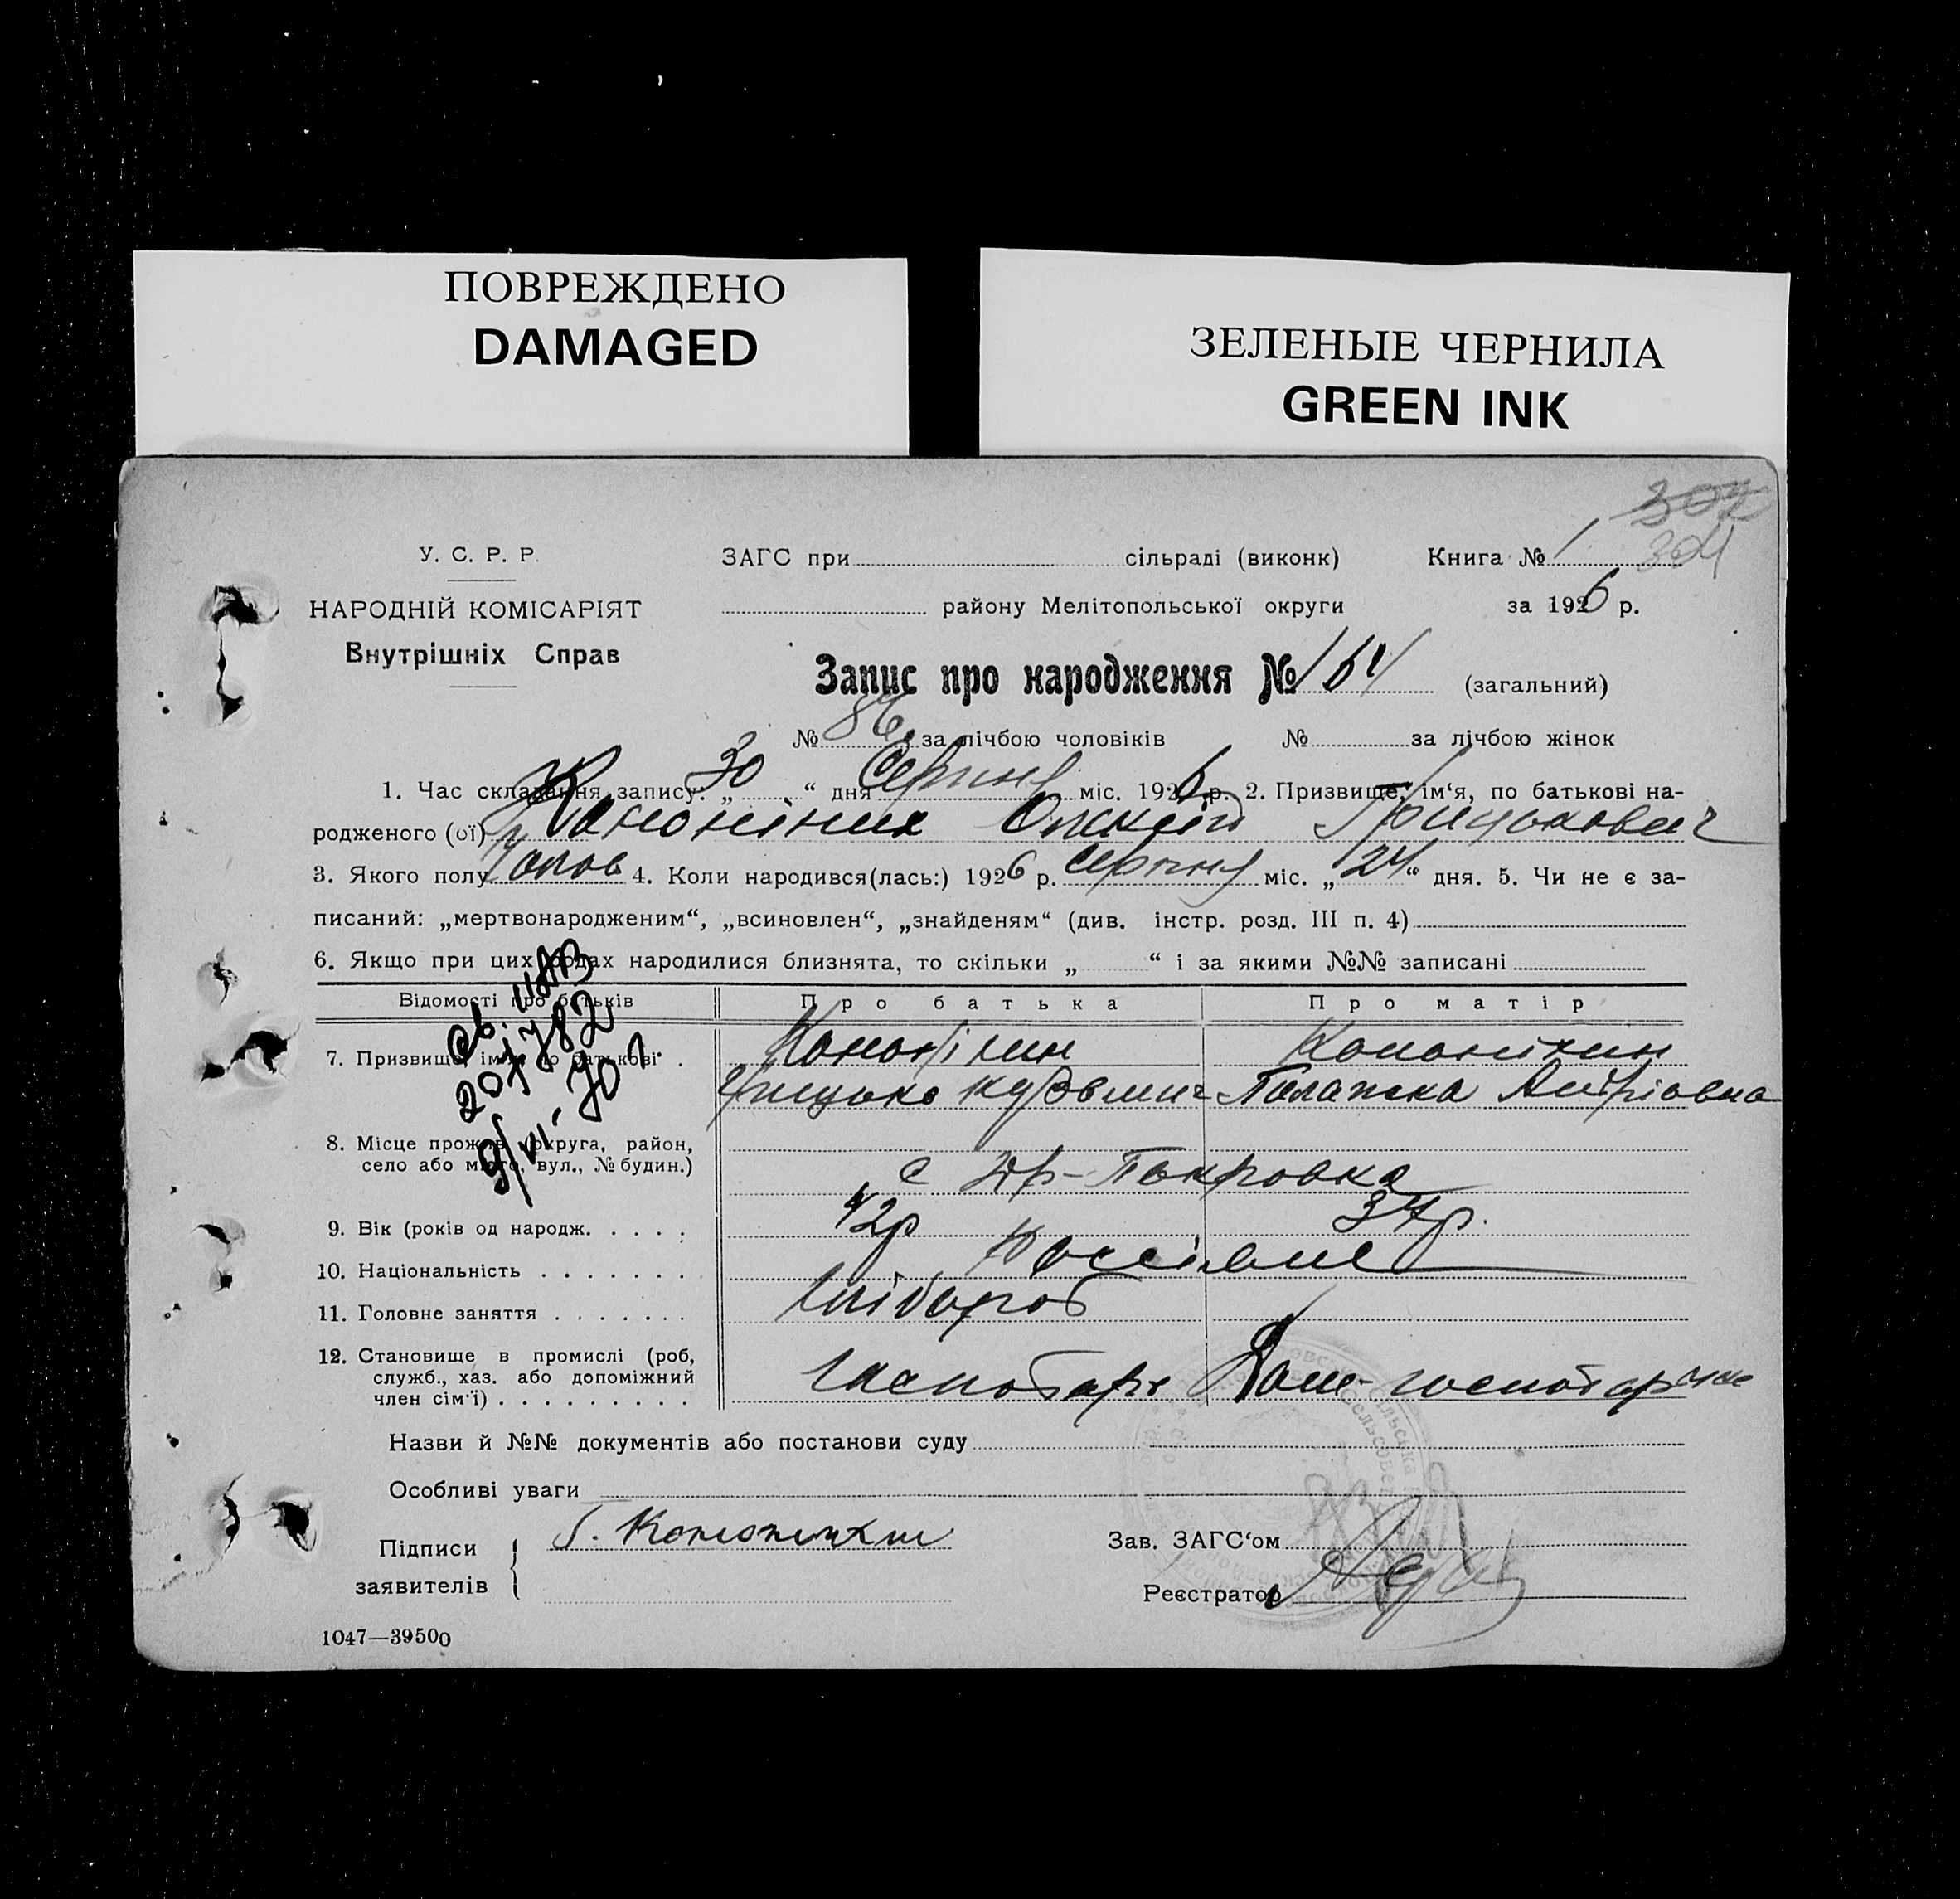 ПОВРЕЖДЕНО
DAMAGED
ЗЕЛЕНЫЕ ЧЕРНИЛА
GREEN INK
302
304
У. С. Р. Р.
НАРОДНІЙ КОМІСАРІЯТ
Внутрішніх Справ
ЗАГС при сільраді (виконк) Книга № 1
району Мелітопольської округи за 1926 р.
Запис про народження № 164 (загальний)
№ 86 за лічбою чоловіків № за лічбою жінок
1. Час складання запису: „ 30 “ дня Серпня міс. 1926 р. 2. Призвище, ім‘я, по батькові на-
родженого (ої) Кононіхин Олексій Грицькович
3. Якого полу чолов 4. Коли народився(лась:) 1926 р. серпня міс. „ 24 “ дня. 5. Чи не є за-
писаний: „мертвонародженим“, „всиновлен“, „знайденям“ (див. інстр. розд. III п. 4)
6. Якщо при цих родах народилися близнята, то скільки „ “ і за якими №№ записані
Відомості про батьків Про батька Про матір
7. Призвище, ім'я, по батькові Кононіхин Кононіхин
Грицько Кузьмич Палажка Андріовна
8. Місце прожив. (округа, район,
село або місто, вул., № будин.) с Покровка
9. Вік (років од народж. 42р 34р.
10. Національність Россіяне
11. Головне заняття хлібороб
12. Становище в промислі (роб,
служб., хаз. або допоміжний
член сім‘ї) господарь Дом-господарка
Назви й №№ документів або постанови суду
Особливі уваги
Підписи
заявителів Г. Кононихин
Зав. ЗАГС‘ом
Реєстратор
1047—39500